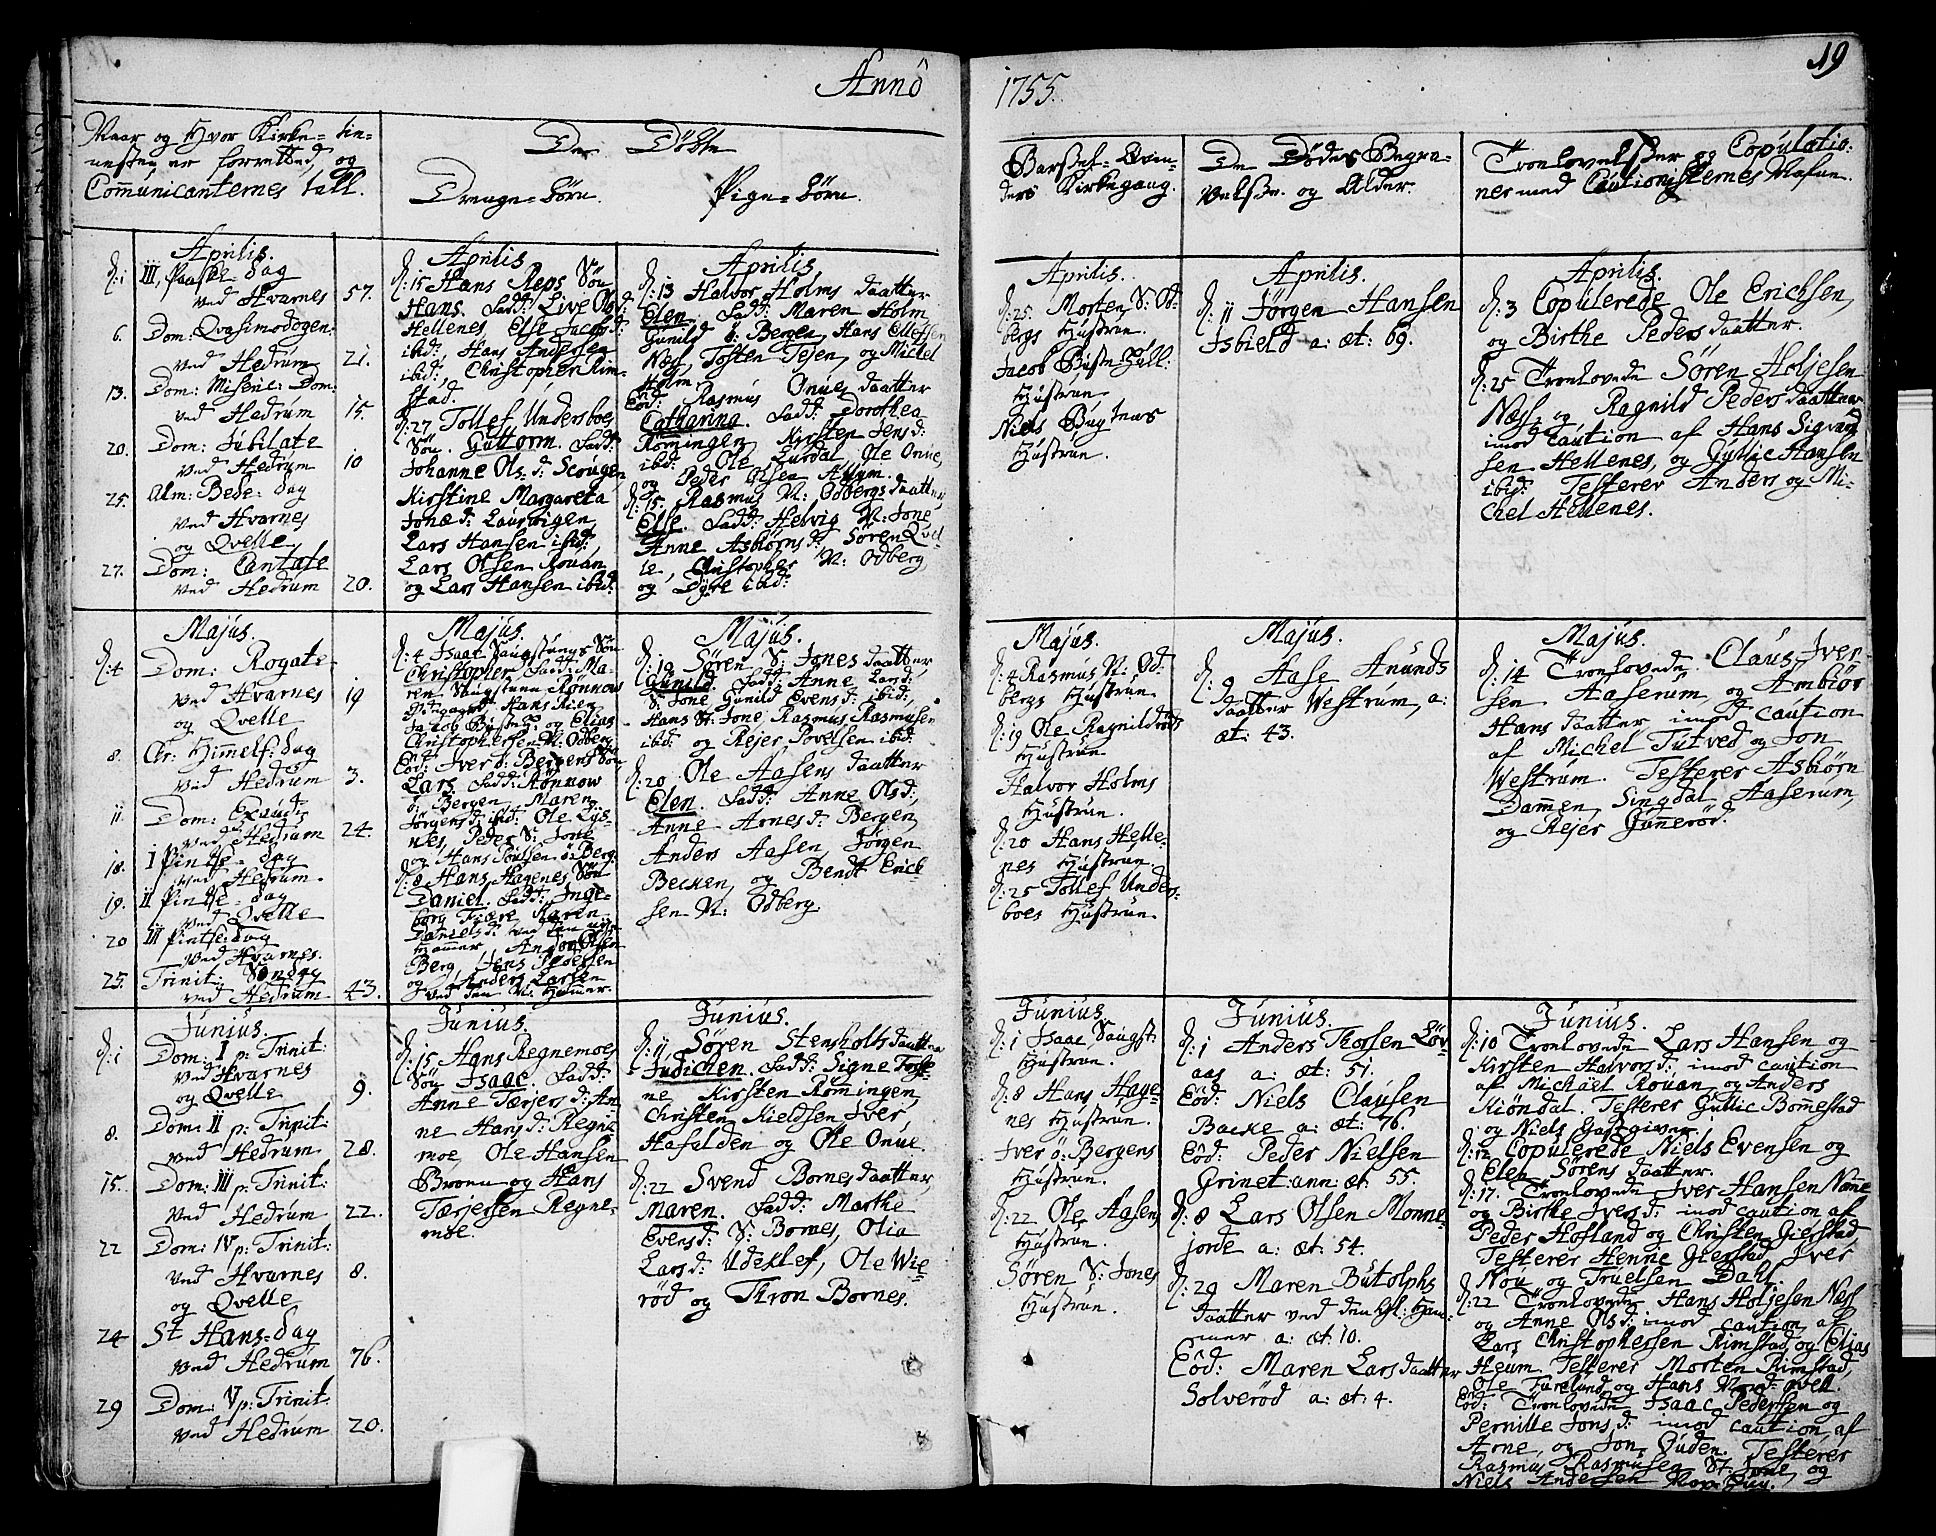 Anno
1755.
19
Naar og Hvor Kirke-tie-
nesten er forretted, og
Communicanternes tall.
De Døbte
Drenge-børn.
Pige-børn.
Barsel-Qvin-
ders Kirkegang.
De Dødes Begra-
velse og Alder.
Troelovelser og Copulatio-
ner med Cautionisternes Nafne.
Aprilis.
d: 1 III Paaske-dag
ved Hvarnes 57.
6. Dom: Qvasimodogen:
ved Hedrum 21.
13. Dom: Miserie: Dom:
ved Hedrum 15.
20. Dom: Jubilate
ved Hedrum 10
25. Alm: Bede-dag
ved Hvarnes
og Qvelle
27. Dom: Cantate
ved Hedrum 20.
Aprilis
d: 15 Hans Reps Søn
Hans. Fadd: Live Olsd:
Hellenes, Else Jacobsd:
ibid:, Hans Andersen
ibid:, Christopher Rim-
stad.
d: 27 Tollef Undersboes
Søn Guttorm. Fadd:
Johanne Ols d: Scougen
Kirstine Margareta
Jonæd: Laurwigen,
Lars Hansen ibid:
Lars Olsen Rouan
og Lars Hansen ibid:
Aprilis.
d: 13 Halvor Holms daatter
Elen. Fadd: Maren Holm
Gunild ö: Bergen, Hans Ellefsen
Næs, Tosten Tejen, og Michel
Holm.
Eôd: Rasmus Onue daatter
Catharina. Fadd: Dorothea
Rømingen, Kirsten Jensd:
ibid: Ole Lurdal, Ole Onue,
og Peder Olsen Allum.
d: 15. Rasmus N: Odbergs daatter
Else. Fadd: Helvig N: Jone,
Anne Asbiørnsd: Søren Qvel-
le, Christopher N: Odberg,
og Dyre ibid:
Aprilis.
d: 25. Morten S: Od-
bergs Hustrue.
Jacob
Hustrue
Niels Bugtens
Hustrue.
Aprilis.
d: 11 Jørgen Hansen
Isbield a: æt: 69.
Aprilis.
d: 3 Copulerede Ole Erichsen,
og Birthe Peders daatter.
d: 25 Troelovede Søren Holjesen
Næss og Ragnild Peders daatter
imod caution af Hans Sigvard-
sen Hellenes, og Gullic Hansen
ibid: Testerer Anders og Mi-
chel Hellenes.
Majus.
d: 4 Dom: Rogate
ved Hvarnes 19
og Qvelle
8. Chr: Himelf: dag
ved Hedrum 3.
11. Dom: Exaudi
ved Hedrum 24.
18. I Pintse-dag
ved Hedrum.
19. II Pintse-dag
ved Qvelle
20 III Pintse dag
ved Hvarnes.
25. Trinit: Søndag
ved Hedrum 43.
Majus.
d: 4 Isaac Saugstuens Søn
Christopher. Fadd: Ma-
ren Saugstuen, Rønnow
Hans
og Elias
Christophersen N: Odberg
Eôd: Iver ö: Bergens Søn
Lars. Fadd: Rønnow
ö: Bergen, Maren
Jørgensd: ibid: Ole Lys-
nes, Peder S: Jone
og Hans ö: Berg.
d: 8 Hans Hagenes Søn
Daniel. Fadd: Inge-
borg Karen
Danielsd:
Hammer, Olsen
Berg, Jens
og Anders Larsen
ved den N: Hammer.
Majus.
d: 19 Søren S: Jones daatter
Gunild. Fadd: Anne Larsd:
S: Jone Gunild Evensd: ibid:
Hans St: Jone, Rasmus Rasmusen
ibid: og Rejer Povelsen ibid:
d: 20 Ole Aasens daatter
Elen. Fadd: Anne Olsd:
Anne Arnesd: Bergen,
Anders Aasen, Jørgen
Becken, og Bendt Erich-
sen N: Odberg.
Majus.
d: 4 Rasmus N: Od-
bergs Hustrue
d: 19 Ole Ragnildrøds
Hustrue
Halvor Holms
Hustrue.
d: 20 Hans Helle-
nes Hustrue.
d: 25 Tollef Unders-
boes Hustrue.
Majus.
d: 9 Aase Anunds
daatter Westrum, a:
æt: 43.
Majus.
d: 14 Troelovede Claus Iver-
sen Aaserum, og Ambiør
Hans daatter imod caution
af Michel Tutved og Jon
Westrum. Testerer Asbiørn
Damen, Singdal Aaserum,
og Rejer Gunnerød.
Junius.
d: 1 Dom: I p: Trinit:
ved Hvarnes
og Qvelle 9.
8. Dom: II p: Trinit:
ved Hedrum 28.
15. Dom: III p: Trinit:
ved Hedrum 22.
22 Dom: IV p: Trinit:
ved Hvarnes 8.
og Qvelle
24 St Hans-dag
ved Hedrum 76.
29 Dom: V p: Trinit.
ved Hedrum 20.
Junius.
d: 15 Hans Regnemoes
Søn Isaac. Fadd:
Anne Tærjers d: An-
ne Hansd: Regne
moe, Ole Hansen
Broen og Hans
Tærjersen Regne-
moe.
Junius.
d: 11 Søren Stensholts daatter
Judichen. Fadd: Signe Torste-
ne, Kirsten Rømingen,
Christen Kieldsen, Iver
Hafelden og Ole Onue.
d: 22 Svend Bornes daatter
Maren. Fadd: Marthe
Evensd: S: Bornes, Olia
Larsd: Udeklef, Ole Wie-
rød og Thron Bornes.
Junius.
d: 1 Isaac Saugst:
Hustrue.
d: 8 Hans Hage-
nes Hustrue.
Iver ö: Bergens
Hustrue.
d: 22 Ole Aasens
Hustrue.
Søren S: Jones
Hustrue.
Junius.
d: 1 Anders Thorsen Löv-
aas a: æt: 51.
Eôd: Niels Clausen
Backe a: æt: 76.
Eôd: Peder Nielsen
Grinet: ann: æt: 55.
d: 8 Lars Olsen Monne-
jorde a: æt: 54.
d: 29 Maren Butolphs
daatter ved den Ham-
mer a: æt: 10.
Eôd: Maren Lars daatter
Solverød a: æt: 4.
Junius.
d: 10 Troelovede Lars Hansen og
Kirsten Halvors d: imod caution
af Michael Rouan, og Anders
Kiöndal. Testerer Gullic Bommestad
og Niels Gastgiver.
d: 12 Copulerede Niels Evensen og
Elen Sörens daatter.
d: 17. Troelovede Iver Hansen Nomme
og Birthe Ivers d: imod caution af
Peder Hofland og Christen Gierstad,
Testerer Henric Gierstad, Iver
Nou og Truelsen Dahl.
d: 22 Troelovede Hans Holjesen Næss
og Anne Olsd: imod caution af
Lars Christophersen Rimstad, og Elias
Heum. Testerer Morten Rimstad,
Ole Farelund og Hans
Eôd: Troelovede Isaac Pedersen og
Pernille Jonsd: imod caution af
Arne, og Jon Guden. Testerer
Rasmus Rasmusen St: Jone, og
Niels Andersen